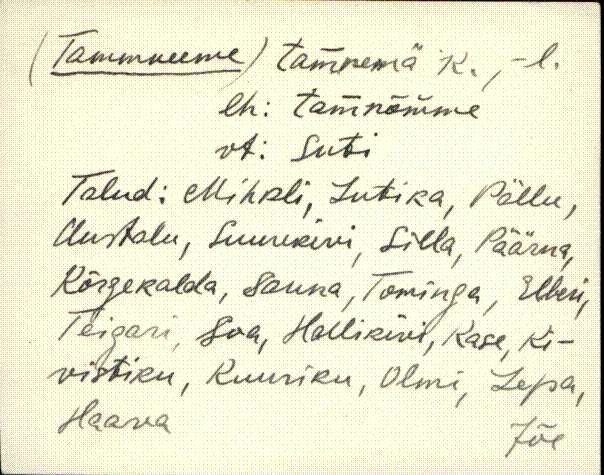 (Tammneeme) tam̄nemä K., -l.
lh: tam̄nõm̄me
vt: Suti
Talud: Mihkli, Lutika, Pällu,
Uustalu, Suurekivi, Silla, Päärna,
Kõrgekalda, Sauna, Tominga, Elberi,
Teigari, Soa, Hallikivi, Kase, Ki-
vistiku, Kuuriku, Olmi, Lepa,
Haava Jõe